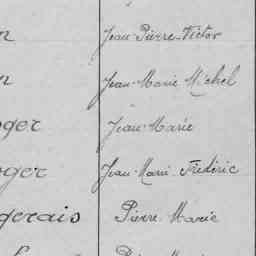 n Jean Pierre Victor
n Jean Marie Michel
oger Jean Marie
oger Jean Marie Frédéric
gerais Pierre Marie
Pierre Marie